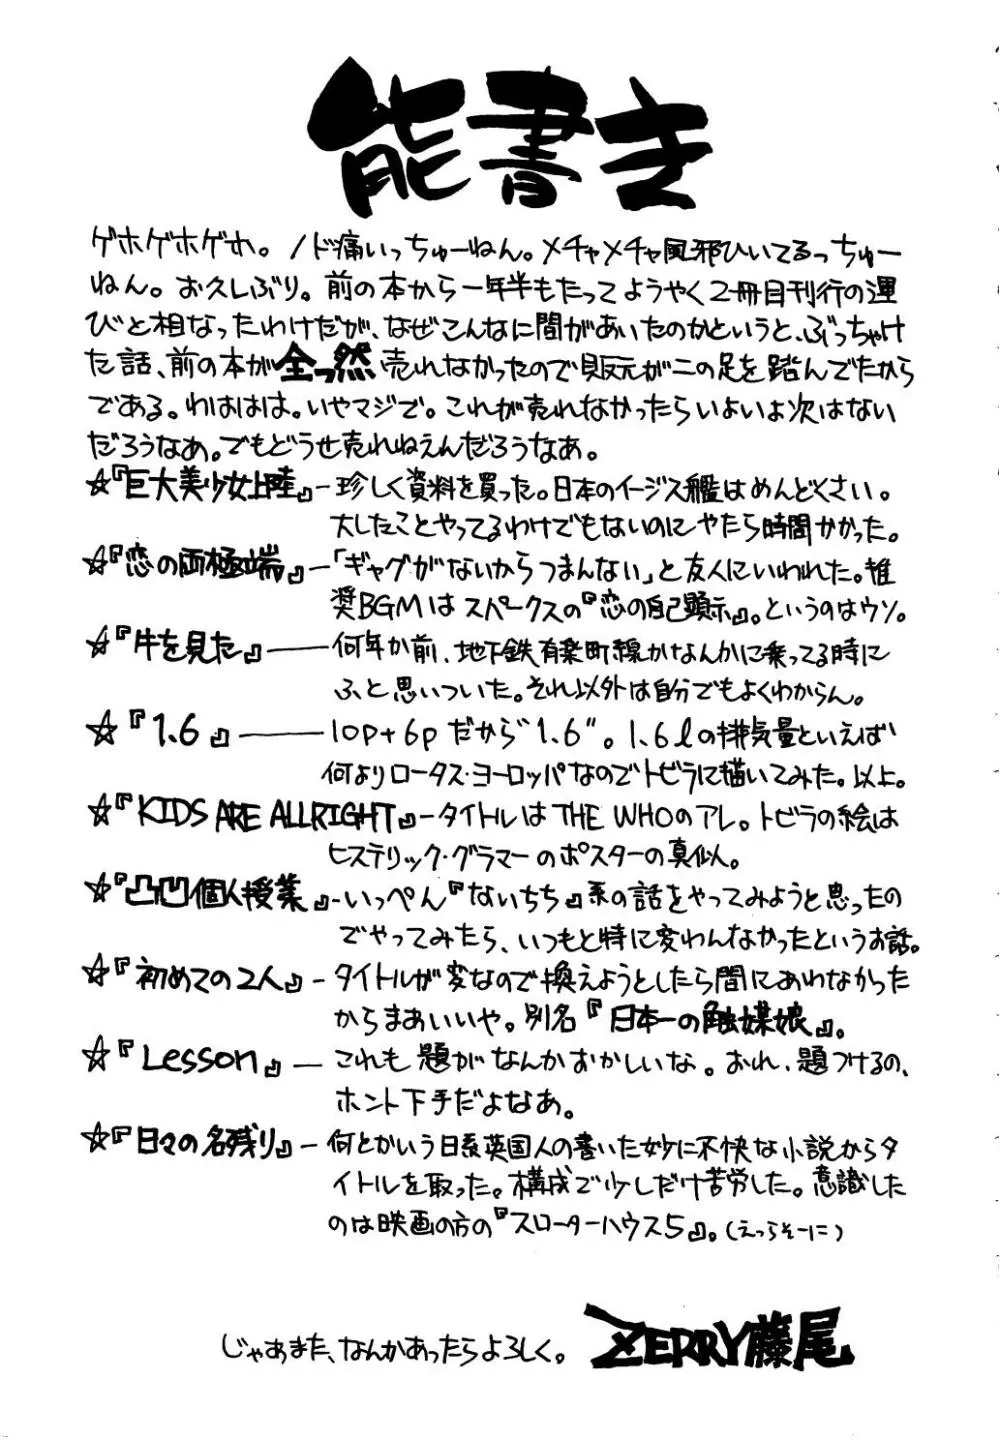 能書き
ゲホゲホゲホ。ノド痛いっちゅーねん。メチャメチャ風邪ひいてるっちゅー
ねん。お久しぶり。前の本から一年半もたってようやく2冊目刊行の運
びと相なったわけだが、なぜこんなに間があいたのかというと、ぶっちゃけ
た話、前の本が全っ然売れなかったので販元が二の足を踏んでたから
である。わははは。いやマジで。これが売れなかったらいよいよ次はない
だろうなあ。でもどうせ売れねえんだろうなあ。
☆『巨大美少女上陸』-珍しく資料を買った。日本のイージス艦はめんどくさい。
大したことやってるわけでもないのにやたら時間かかった。
☆『恋の両極端』-「ギャグがないからつまんない」と友人にいわれた。推
奨BGMはスパークスの『恋の自己顕示』。というのはウソ。
☆『牛を見た』――何年か前、地下鉄有楽町線かなんかに乗ってる時に
ふと思いついた。それ以外は自分でもよくわからん。
☆『1.6』――10p+6pだから"1.6"。1.6lの排気量といえば
何よりロータス・ヨーロッパなのでトビラに描いてみた。以上。
☆『KIDS ARE ALLRIGHT』-タイトルはTHE WHOのアレ。トビラの絵は
ヒステリック・グラマーのポスターの真似。
☆『凸凹個人授業』-いっぺん『ないちち』系の話をやってみようと思ったの
でやってみたら、いつもと特に変わんなかったというお話。
☆『初めての2人』-タイトルが変なので換えようとしたら間にあわなかった
からまあいいや。別名『日本一の触媒娘』。
☆『Lesson』―これも題がなんかおかしいな。おれ、題つけるの、
ホント下手だよなあ。
☆『日々の名残り』-何とかいう日系英国人の書いた妙に不快な小説からタ
イトルを取った。構成で少しだけ苦労した。意識した
のは映画の方の『スローターハウス5』。(えっらそーに)
じゃあまた、なんかあったらよろしく。 ZERRY藤尾